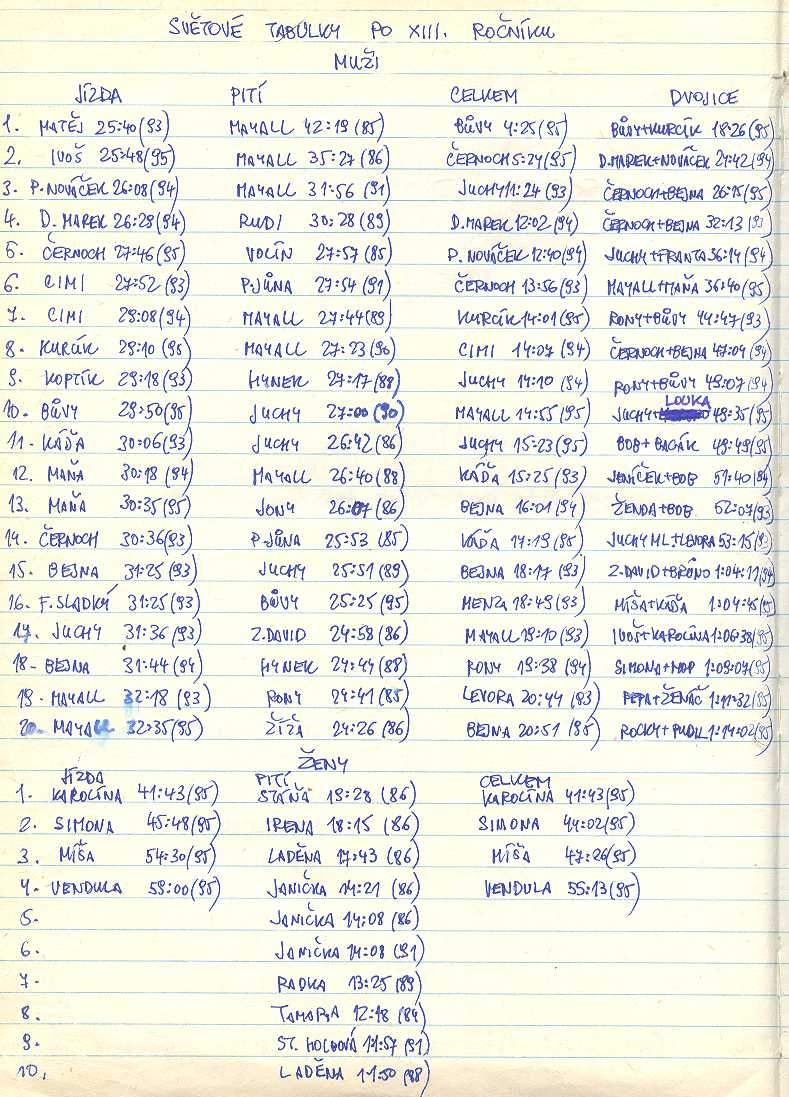 SVĚTOVÉ TABULKY PO XIII. ROČNÍKU
MUŽI
JÍZDA PITÍ CELKEM DVOJICE
1. MATĚJ 25:40(93) MAYALL 42:19(85) BŮVY 4:25(95) BŮVY+KURCÍK 18:26(95)
2. IVOŠ 25:48(95) MAYALL 35:27(86) ČERNOCH 5:24(95) D.MAREK+NOVÁČEK 24:42(94)
3. P.NOVÁČEK 26:08(94) MAYALL 31:56(91) JUCHY 11:24(93) ČERNOCH+BEJNA 26:15(95)
4. D.MAREK 26:29(94) RUDI 30:28(89) D.MAREK 12:02(94) ČERNOCH+BEJNA 32:13
5. ČERNOCH 27:46(95) VOLÍN 27:57(85) P.NOVÁČEK 12:40(94) JUCHY+FRANTA 36:14(94)
6. CIMI 27:52(93) P.JŮNA 27:54(91) ČERNOCH 13:56(93) MAYALL+MAŇA 36:40(95)
7. CIMI 29:08(94) MAYALL 27:44(89) KURCÍK 14:01(95) RONY+BŮVY 44:47(93)
8. KURCÍK 29:10(95) MAYALL 27:23(90) CIMI 14:07(94) ČERNOCH+BEJNA 47:04(94)
9. KOPTÍK 29:18(93) HYNEK 27:17(88) JUCHY 14:10(94) RONY+BŮVY 49:07(94)
10. BŮVY 29:50(95) JUCHY 27:00(90) MAYALL 14:55(95) JUCHY+LOUKA 49:35(95)
11. KÁĎA 30:06(93) JUCHY 26:42(86) JUCHY 15:23(95) BOB+BACÁK 49:49(95)
12. MAŇA 30:18(94) MAYALL 26:40(88) KÁĎA 15:25(93) JENÍČEK+BOB 51:40(94)
13. MAŇA 30:35(95) JONY 26:07(86) BEJNA 16:01(94) ŽENDA+BOB 52:07(93)
14. ČERNOCH 30:36(93) P.JŮNA 25:53(85) KÁĎA 17:19(95) JUCHY ML.+LEVORA 53:15
15. BEJNA 31:25(93) JUCHY 25:51(89) BEJNA 18:17(93) Z.DAVID+BRŮNO 1:04:11(94)
16. F.SLADKÝ 31:25(93) BŮVY 25:25(95) MENZA 18:49(93) MÍŠA+KÁĎA 1:04:45(95)
17. JUCHY 31:36(93) Z.DAVID 24:58(86) MAYALL 19:10(93) IVOŠ+KAROLÍNA 1:06:38(95)
18. BEJNA 31:44(94) HYNEK 24:44(88) RONY 19:38(94) SIMONA+MOP 1:09:07(95)
19. MAYALL 32:18(93) RONY 24:41(85) LEVORA 20:44(93) PEPA+ŽENÁČ 1:11:32(95)
20. MAYALL 32:35(95) ŽÍŽA 24:26(86) BEJNA 20:51(95) ROCKY+PUDIL 1:14:02(95)
ŽENY
JÍZDA PITÍ CELKEM
1. KAROLÍNA 41:43(95) STÁŇA 19:28(86) KAROLÍNA 41:43(95)
2. SIMONA 45:48(95) IRENA 18:15(86) SIMONA 44:02(95)
3. MÍŠA 54:30(95) LADĚNA 17:43(86) MÍŠA 47:26(95)
4. VENDULA 59:00(95) JANIČKA 14:21(86) VENDULA 55:13(95)
5. JANIČKA 14:08(86)
6. JANIČKA 14:08(91)
7. RADKA 13:25(89)
8. TAMARA 12:18(84)
9. ST. HOLBOVÁ 11:57(91)
10. LADĚNA 11:50(88)